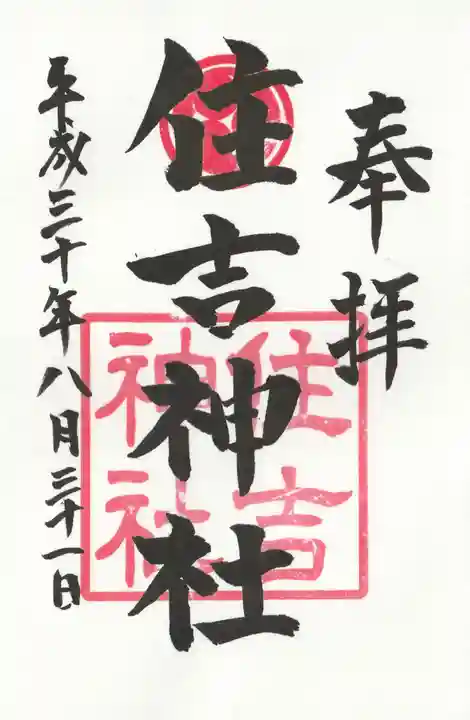 奉拝
住吉神社
住吉
神社
平成三十年八月三十一日